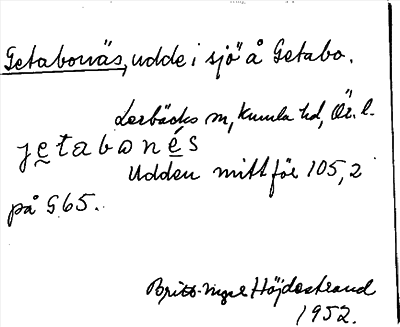 Getabonäs, udde i sjö å Getabo.
Lerbäcks sn, Kumla hd, Ör. l.
jetabonés
Udden mitt för 105,2
på G65.
Britt-Inger Höjdestrand
1952.